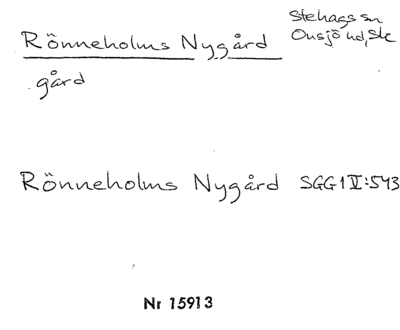 Rönneholms Nygård
Stehags sn
Onsjö hd, Sk
gård
Rönneholms Nygård SGG1 V:543
Nr 15913